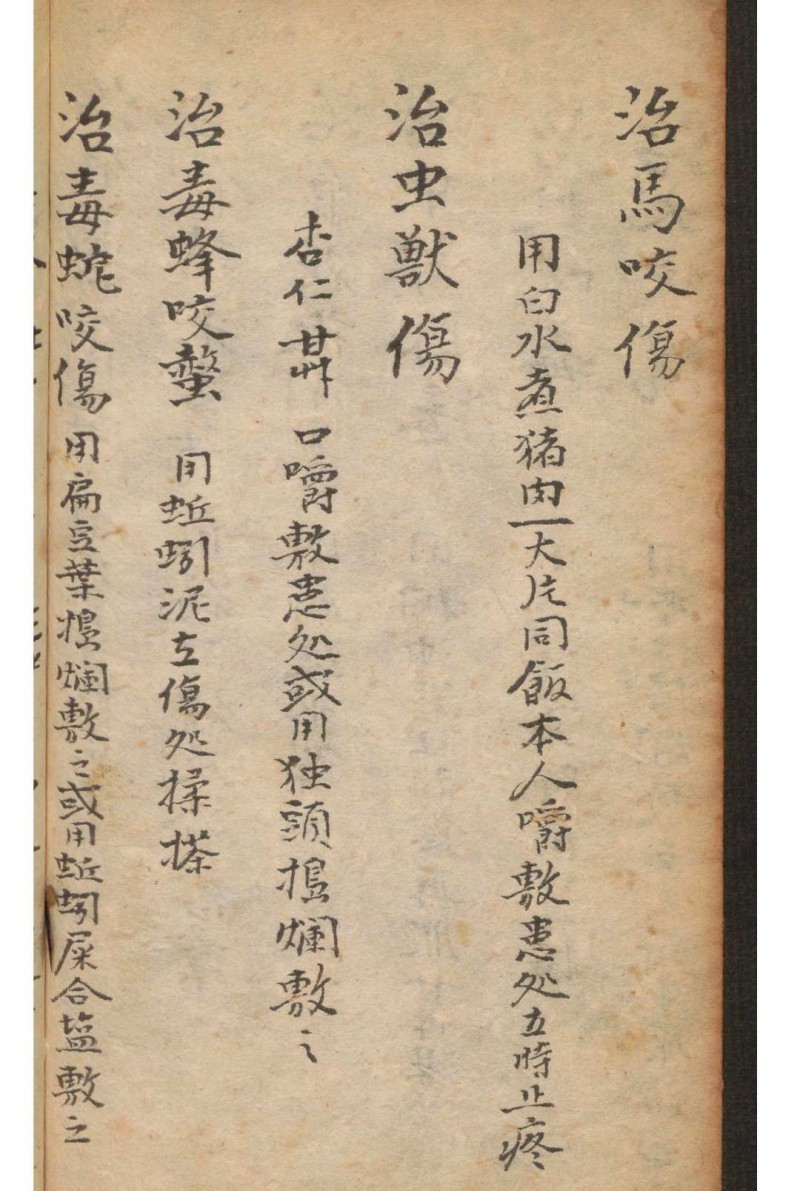 治馬咬傷
用白水煮猪肉一大片同飯本人嚼敷患处立時止疼
治虫獸傷
杏仁甘艸口嚼敷患处或用独頭搗爛敷之
治毒蜂咬螫 用蚯蚓泥在傷处揉搽
治毒蛇咬傷 用扁豆葉搗爛敷之或用蚯蚓屎合塩敷之